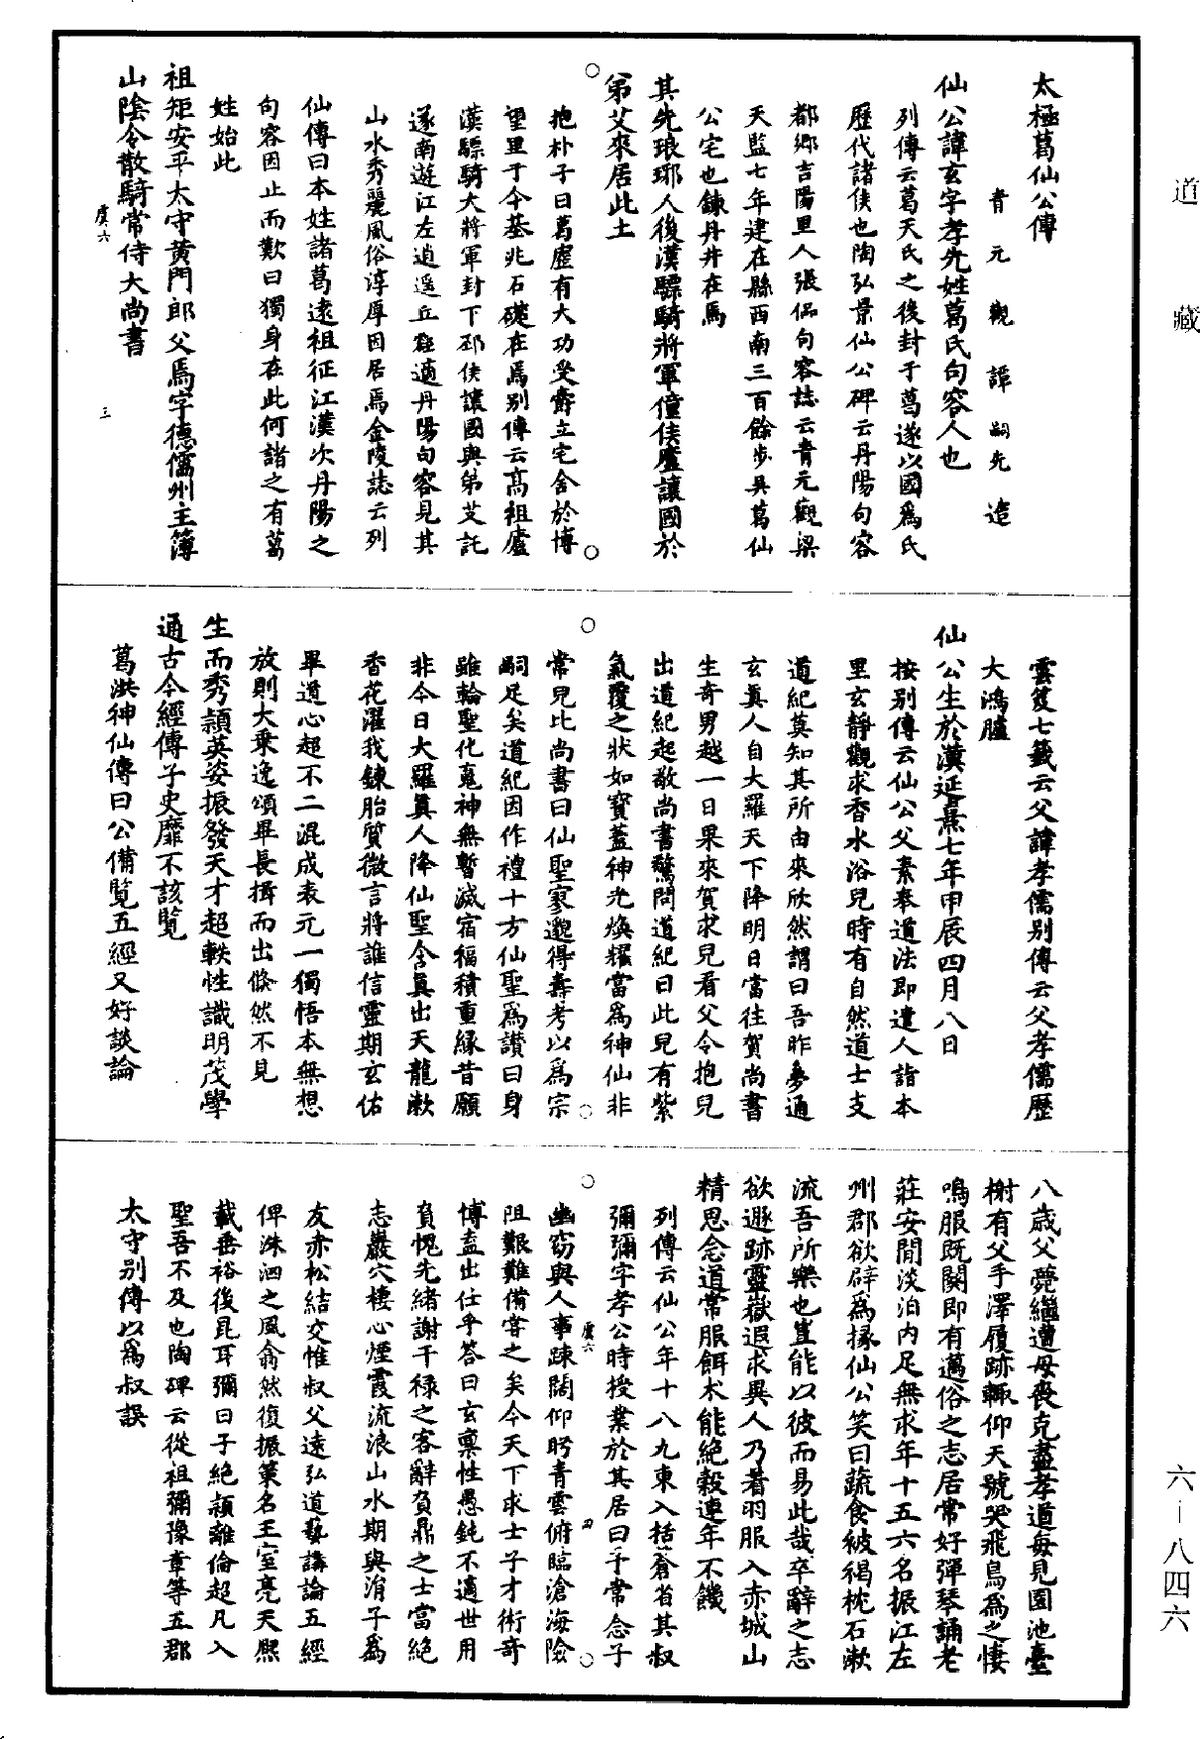 道藏
太極葛仙公傳
青元觀譚嗣先造
仙公諱玄字孝先姓葛氏句容人也
列傳云葛天氏之後封于葛遂以國爲氏
歷代諸侯也陶弘景仙公碑云丹陽句容
都鄉吉陽里人張侃句容誌云青元觀梁
天監七年建在縣西南三百餘步吳葛仙
公宅也鍊丹井在焉
其先琅琊人後漢驃騎將軍僮侯廬讓國於
弟艾來居此土
抱朴子曰葛廬有大功受爵立宅舍於博
望里于今基兆石礎在焉別傳云高祖廬
漢驃騎大將軍封下邳侯讓國與弟艾託
遂南遊江左逍遥丘壑適丹陽句容見其
山水秀麗風俗淳厚因居焉金陵誌云列
仙傳曰本姓諸葛遠祖征江漢次丹陽之
句容因止而歎曰獨身在此何諸之有葛
姓始此
祖矩安平太守黄門郎父焉字德儒州主簿
山陰令散騎常侍大尚書
虞六
三
雲笈七籤云父諱孝儒別傳云父孝儒歷
大鴻臚
仙公生於漢延熹七年甲辰四月八日
按別傳云仙公父素奉道法即遣人詣本
里玄靜觀求香水浴兒時有自然道士支
道紀莫知其所由來欣然謂曰吾昨夢通
玄真人自大羅天下降明日當往賀尚書
生奇男越一日果來賀求兒看父令抱兒
出道紀起敬尚書驚問道紀曰此兒有紫
氣覆之狀如寶蓋神光煥耀當爲神仙非
常兒比尚書曰仙聖寥邈得壽考以爲宗
嗣足矣道紀因作禮十方仙聖爲讚曰身
雖輪聖化鬼神無暫滅宿福積重緣昔願
非今日大羅真人降仙聖含真出天龍漱
香花濯我鍊胎質微言將誰信靈期玄佑
畢道心超不二混成表元一獨悟本無想
放則大乘逸頌畢長揖而出倏然不見
生而秀穎英姿振發天才超軼性識明茂學
通古今經傳子史靡不該覽
葛洪神仙傳曰公備覽五經又好談論
八歲父薨繼遭母喪克盡孝道每見園池臺
榭有父手澤履跡輒仰天號哭飛鳥爲之悽
鳴服既闋即有邁俗之志居常好彈琴誦老
莊安閒淡泊内足無求年十五六名振江左
州郡欲辟爲掾仙公笑曰蔬食被褐枕石漱
流吾所樂也豈能以彼而易此哉卒辭之志
欲遯跡靈嶽遐求異人乃著羽服入赤城山
精思念道常服餌术能絶穀連年不饑
列傳云仙公年十八九東入括蒼省其叔
彌彌字孝公時授業於其居曰予常念子
幽窈與人事踈闊仰眄青雲俯臨滄海險
阻艱難備嘗之矣今天下求士子才術奇
博盍出仕乎答曰玄稟性愚鈍不適世用
負愧先緒謝干祿之客辭負鼎之士當絶
志巖穴棲心煙霞流浪山水期與涓子爲
友赤松結交惟叔父遠弘道藝講論五經
俾洙泗之風翕然復振策名王室亮天熙
載垂裕後昆耳彌曰子絶穎離倫超凡入
聖吾不及也陶碑云從祖彌豫章等五郡
太守別傳以爲叔誤
虞六
四
六－八四六